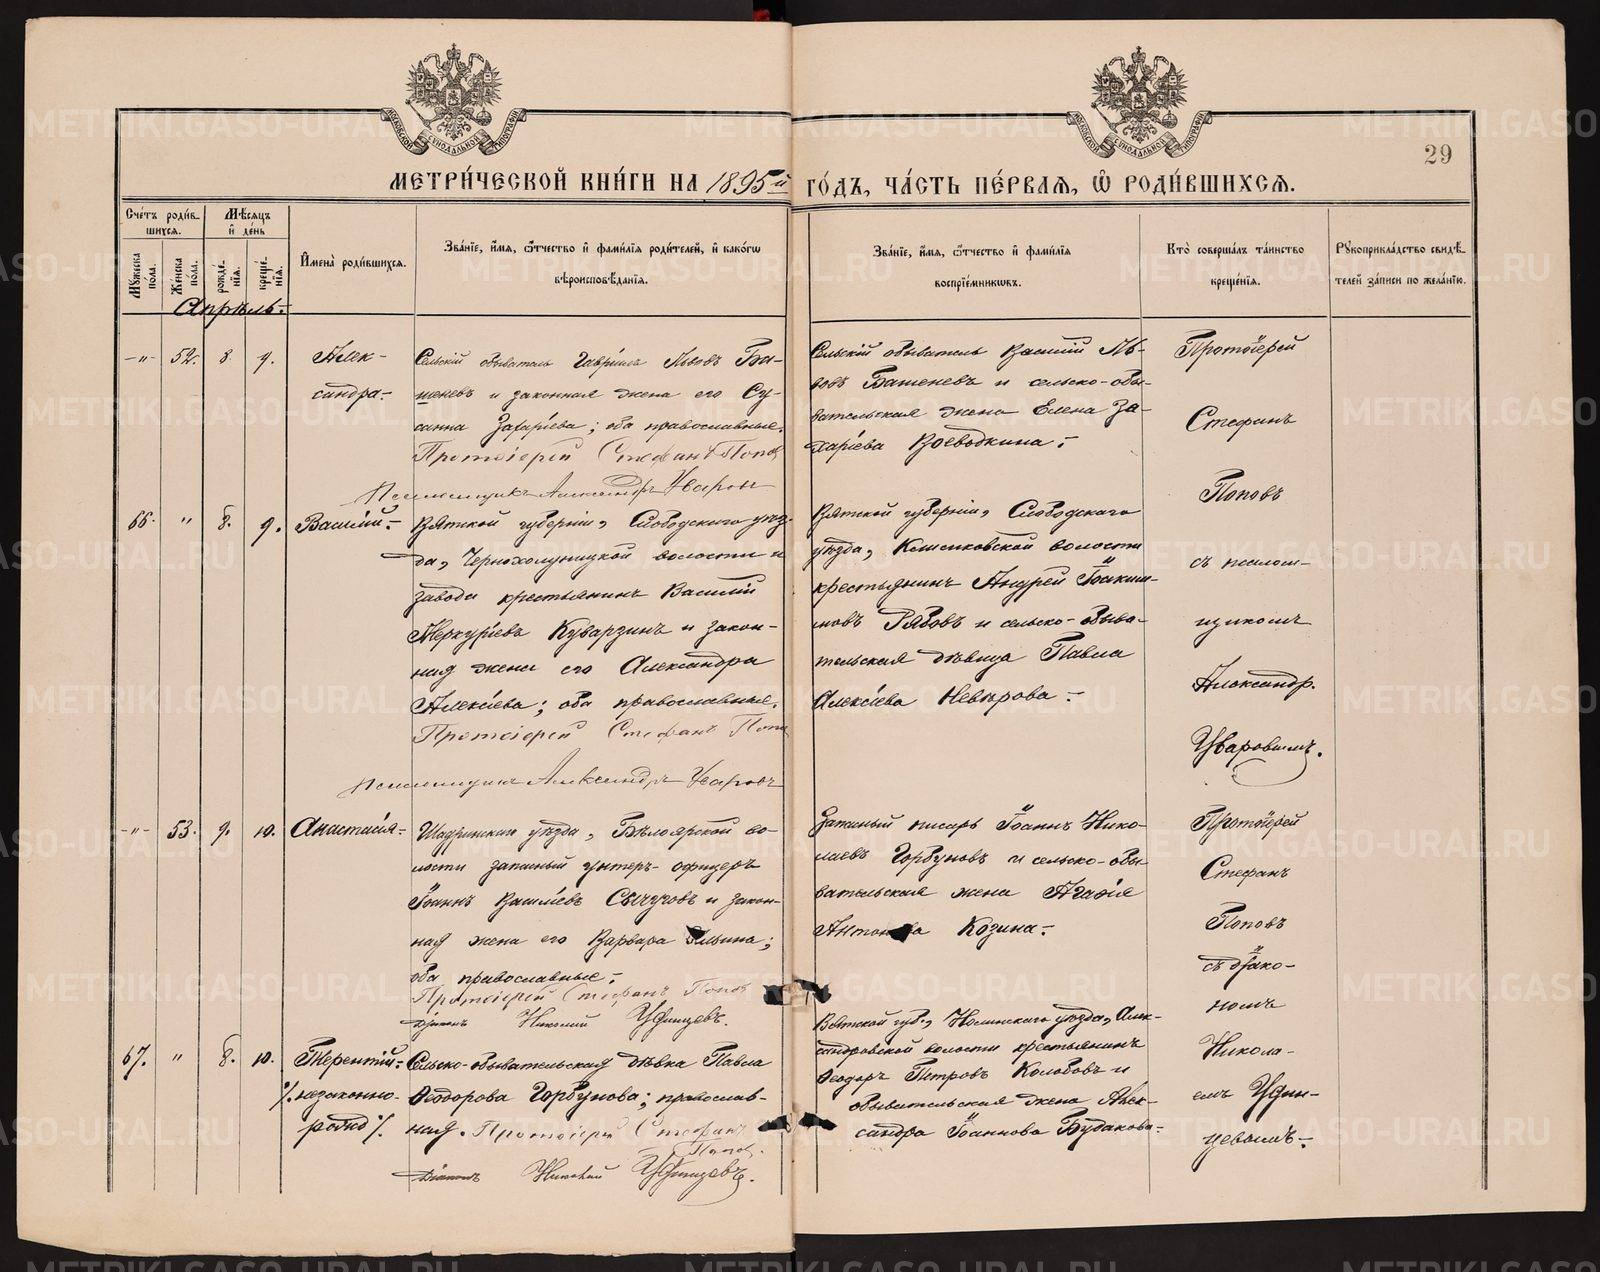 МЕТРИ́ЧЕСКОЙ КНИ́ГИ НА 1895й ГО́ДЪ, ЧА́СТЬ ПЕ́РВАЯ, Ѡ РОДИ́ВШИХСЯ.
29
Сче́тъ роди́в-
шихся.
Мѣсяцъ
и́ де́нь
Мꙋ́жеска пола.
Же́нска пола.
рожде́-нїя.
креще́-нїя.
И҆мена̀ роди́вшихся.
Зва́нїе, и҆́мя, ѻ҆́тчество и҆ фами́лїя роди́телей, и҆ како́гѡ
вѣроисповѣ́данїя.
Зва́нїе, и҆́мя, ѻ҆́тчество и҆ фами́лїя
воспрїе́мникѡвъ.
Кто̀ соверша́лъ та́инство
креще́нїя.
Рꙋкоприкла́дство свидѣ́-
телей за́писи по жела́нїю.
Апрѣль.
-"- 52. 8. 9.
Алек-
сандра.
Сельскій обыватель Гавріилъ Львовъ Ба-
женевъ и законная жена его Су-
санна Захаріева; оба православные.
Протоіерей Стефанъ Попов
Псаломщикъ Александръ Уваровъ
Сельскій обыватель Василій Ль-
вовъ Баженевъ и сельско-обы-
вательская жена Елена За-
харіева Воеводкина.
Протоіерей
Стефанъ
Поповъ
съ псалом-
щикомъ
Александр.
Уваровымъ.
66. " 8. 9.
Василій.
Вятской губерніи, Слободскаго уѣз-
да, Чернохолуницкой волости и
завода крестьянинъ Василій
Меркуріевъ Куварзинъ и закон-
ная жена его Александра
Алексіева; оба православные.
Протоіерей Стефанъ Попов
Псаломщикъ Александръ Уваровъ
Вятской губерніи, Слободскаго
уѣзда, волости
крестьянинъ Андрей Іоаким-
новъ Рябовъ и сельско-обыва-
тельская дѣвица Павла
Алексіева Невѣрова.
-"- 53. 9. 10.
Анастасія.
Шадринскаго уѣзда, Бѣлоярской во-
лости запасный унтеръ-офицеръ
Іоаннъ Василіевъ Сычуговъ и закон-
ная жена его Варвара Ильина;
оба православные.
Протоіерей Стефанъ Попов
Діаконъ Николай Удинцевъ.
Запасный писарь Іоаннъ Нико-
лаевъ Горбуновъ и сельско-обы-
вательская жена Агафія
Антонова Козина.
Протоіерей
Стефанъ
Поповъ
съ діако-
номъ
Никола-
емъ Удин-
цевымъ.
67. " 8. 10.
Терентій.
незаконно-
рожд.
Сельско-обывательская дѣвка Павла
Ѳеодорова Горбунова; православ-
ная. Протоіерей Стефанъ
Попов.
Діаконъ Николай Удинцевъ.
Вятской губ., Нолинскаго уѣзда, Алек-
сандровской волости крестьянинъ
Ѳеодоръ Петровъ Колобовъ и
обывательская жена Алек-
сандра Іоаннова Будакова.
METRIKI.GASO-URAL.RU